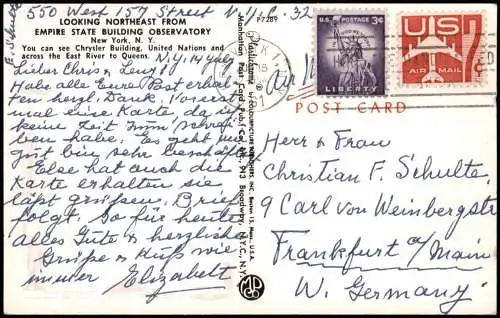 550 West 157 Street N.Y.C. 32
E. Schulte
LOOKING NORTHEAST FROM
EMPIRE STATE BUILDING OBSERVATORY
New York, N. Y.
You can see Chrysler Building, United Nations and
across the East River to Queens.
N.Y. 14 July
Lieber Chris + Leny!
Habe alle Eure Post erhal-
ten herzl. Dank. Vorerst
mal eine Karte da ich
keine Zeit zum schrei-
ben habe. Es geht uns
gut bin sehr beschäftigt
Else hat auch die
Karte erhalten sie
läßt grüßen. Brief
folgt. So für heute
alles Gute & herzliche
Grüße & Kuß wie
immer Elizabeth
P7289
Manhattan Post Card Pub. Co., Inc., 913 Broadway, N.Y.C., N.Y.
MADE IN U.S.A.
U.S. POSTAGE 3¢
IN GOD WE TRUST
LIBERTY
US
7¢
AIR MAIL
Air M
POST CARD
Herr & Frau
Christian F. Schulte
9 Carl von Weinbergstr
Frankfurt a/Main
W. Germany